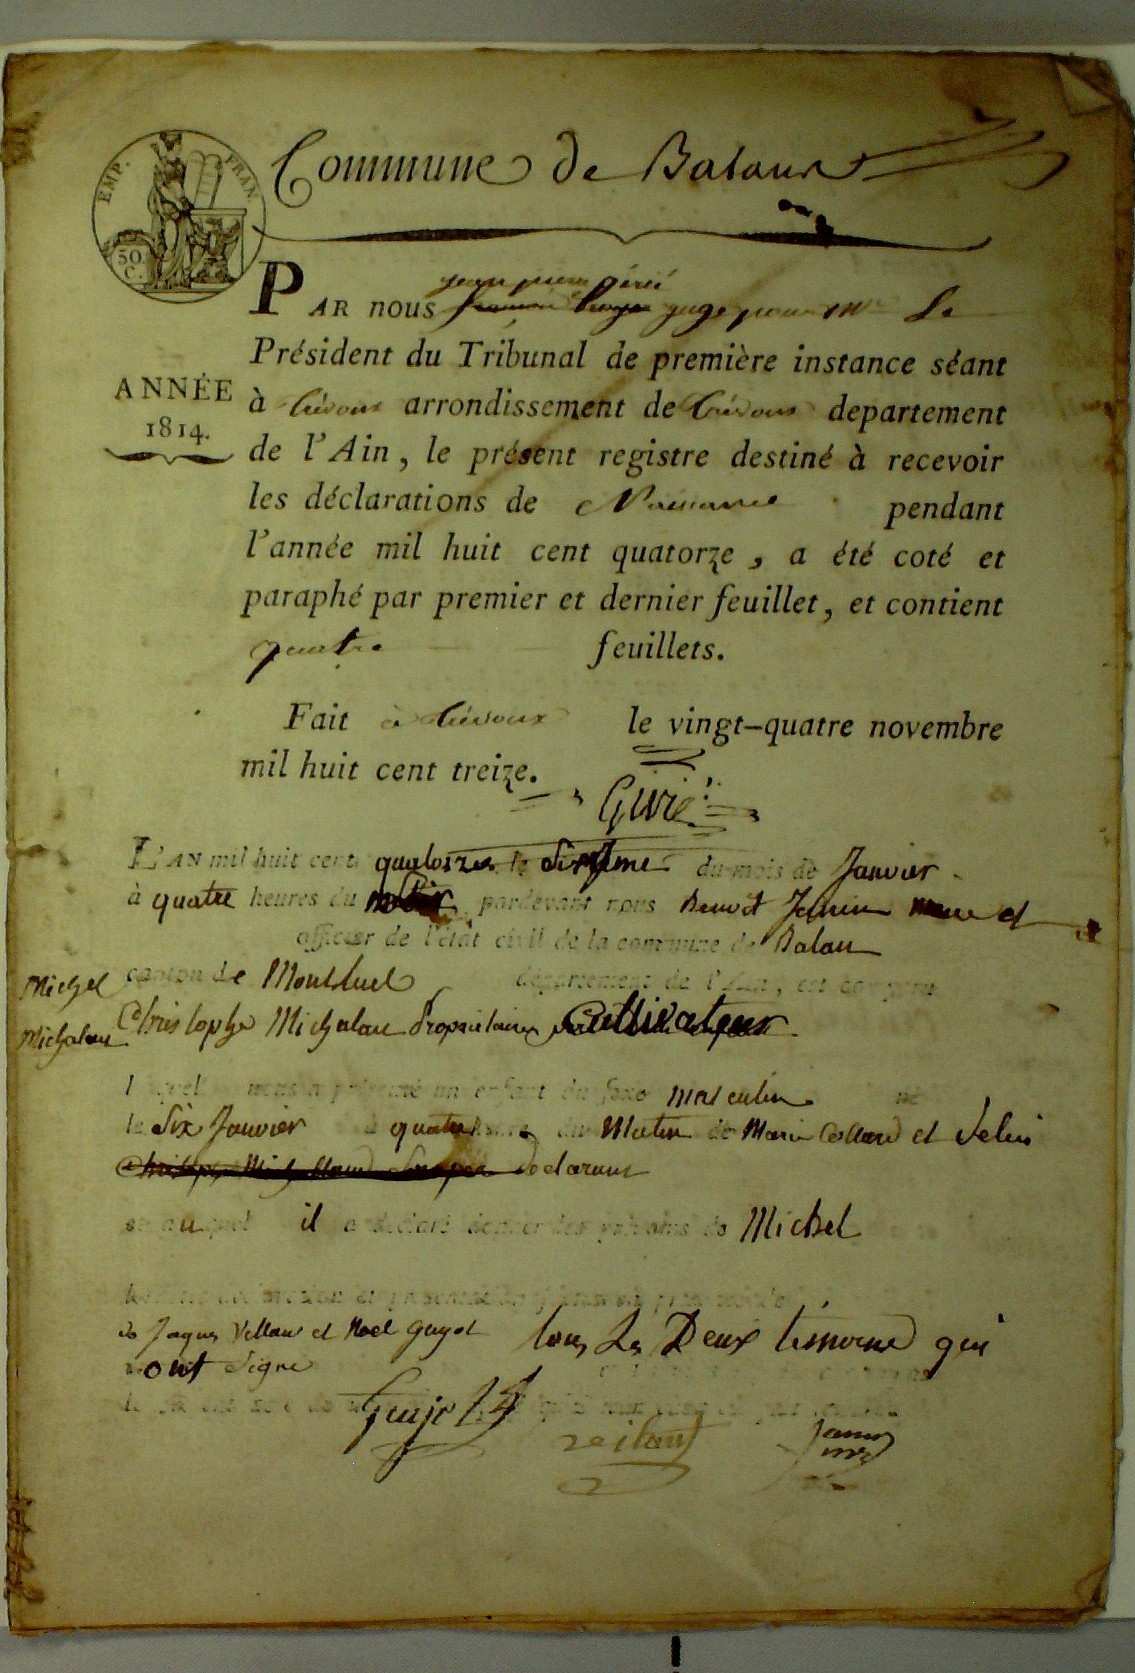 Commune de Balan
EMP. FRAN.
50. C.
jean pierre Girié
PAR nous juge pour Mr Le
Président du Tribunal de première instance séant
ANNÉE
1814.
à Trévoux arrondissement de Trévoux departement
de l'Ain, le présent registre destiné à recevoir
les déclarations de Naissance pendant
l'année mil huit cent quatorze, a été coté et
paraphé par premier et dernier feuillet, et contient
quatre feuillets.
Fait à Trévoux le vingt-quatre novembre
mil huit cent treize.
Girié
L'AN mil huit cent quatorze le Sixieme du mois de Janvier
à quatre heures du pardevant nous Benoit Janin et
officier de l'état civil de la commune de Balan
canton de Montluel département de l'Ain, est comparu
Michel
Michalau
Christophe Michalau Proprietaire Cultivateur
lequel nous a présenté un enfant du sexe masculin né
le Six Janvier à quatre heures du Matin de Marie Collard et Deluy
declarant
et auquel il a déclaré donner les prénoms de Michel
de Jaques Villau et Noel Guyot tous les Deux temoins qui
ont Signé